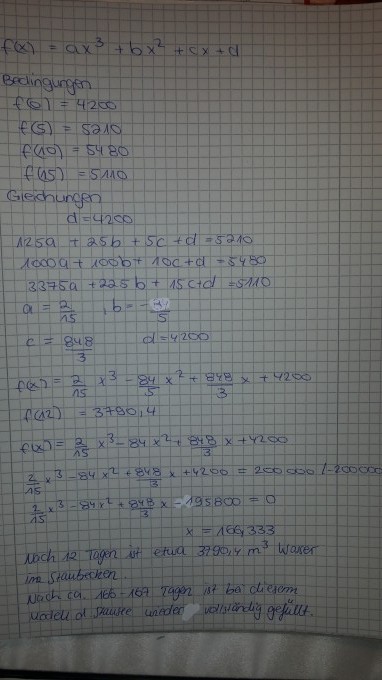 f(x) = ax³ + bx² + cx + d
Bedingungen
f(0) = 4200
f(5) = 5210
f(10) = 5480
f(15) = 5110
Gleichungen
d=4200
125a + 25b + 5c + d = 5210
1000a + 100b + 10c + d = 5480
3375a + 225b + 15c + d = 5110
a = 2/15 , b = - 84/5
c = 848/3 d = 4200
f(x) = 2/15 x³ - 84/5 x² + 848/3 x + 4200
f(12) = 3790,4
f(x) = 2/15 x³ - 84 x² + 848/3 x + 4200
2/15 x³ - 84 x² + 848/3 x + 4200 = 200000 /-200000
2/15 x³ - 84 x² + 848/3 x - 195800 = 0
x = 166,333
Nach 12 Tagen ist etwa 3790,4 m³ Wasser
im Staubecken.
Nach ca. 166-167 Tagen ist bei diesem
Modell d. Stausee wieder vollständig gefüllt.